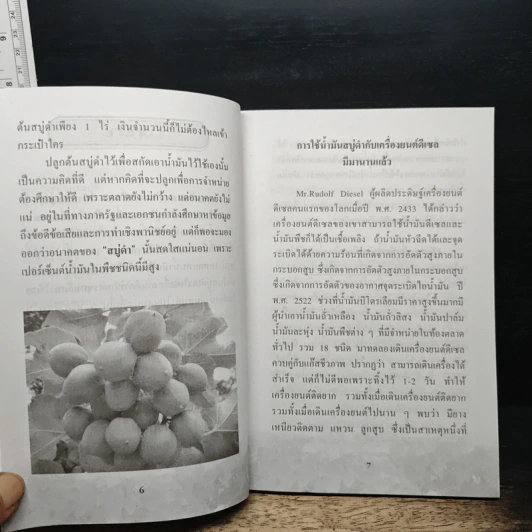 ต้นสบู่ดำเพียง 1 ไร่ เงินจำนวนนี้ก็ไม่ต้องไหลเข้า
กระเป๋าใคร
ปลูกต้นสบู่ดำไว้เพื่อสกัดเอาน้ำมันไว้ใช้เองนั้น
เป็นความคิดที่ดี แต่หากคิดที่จะปลูกเพื่อการจำหน่าย
ต้องศึกษาให้ดี เพราะตลาดยังไม่กว้าง แต่อนาคตยังไม่
แน่ อยู่ในที่ทางภาครัฐและเอกชนกำลังศึกษาหาข้อมูล
ถึงข้อดีข้อเสียและการทำเชิงพาณิชย์อยู่ แต่ก็พอจะมอง
ออกว่าอนาคตของ "สบู่ดำ" นั้นสดใสแน่นอน เพราะ
เปอร์เซ็นต์น้ำมันในพืชชนิดนี้มีสูง
6
การใช้น้ำมันสบู่ดำกับเครื่องยนต์ดีเซล
มีมานานแล้ว
Mr.Rudolf Diesel ผู้ผลิตประดิษฐ์เครื่องยนต์
ดีเซลคนแรกของโลกเมื่อปี พ.ศ. 2433 ได้กล่าวว่า
เครื่องยนต์ดีเซลของเขาสามารถใช้น้ำมันดีเซลและ
น้ำมันพืชก็ได้เป็นเชื้อเพลิง ถ้าน้ำมันหัวฉีดได้และจุด
ระเบิดได้ด้วยความร้อนที่เกิดจากการอัดตัวสูงภายใน
กระบอกสูบ ซึ่งเกิดจากการอัดตัวสูงภายในกระบอกสูบ
ซึ่งเกิดจากการอัดตัวของอากาศจุดระเบิดไอน้ำมัน ปี
พ.ศ. 2522 ช่วงที่น้ำมันปิโตรเลียมมีราคาสูงขึ้นมากมี
ผู้นำเอาน้ำมันถั่วเหลือง น้ำมันถั่วลิสง น้ำมันปาล์ม
น้ำมันละหุ่ง น้ำมันพืชต่าง ๆ ที่มีจำหน่ายในท้องตลาด
ทั่วไป รวม 18 ชนิด มาทดลองเดินเครื่องยนต์ดีเซล
ควบคู่กับแก๊สชีวภาพ ปรากฏว่า สามารถเดินเครื่องได้
สำเร็จ แต่ก็ไม่ดีพอเพราะทิ้งไว้ 1-2 วัน ทำให้
เครื่องยนต์ติดยาก รวมทั้งเมื่อเดินเครื่องยนต์ติดยาก
รวมทั้งเมื่อเดินเครื่องยนต์ไปนาน ๆ พบว่า มียาง
เหนียวติดตาม แหวน ลูกสูบ ซึ่งเป็นสาเหตุหนึ่งที่
7